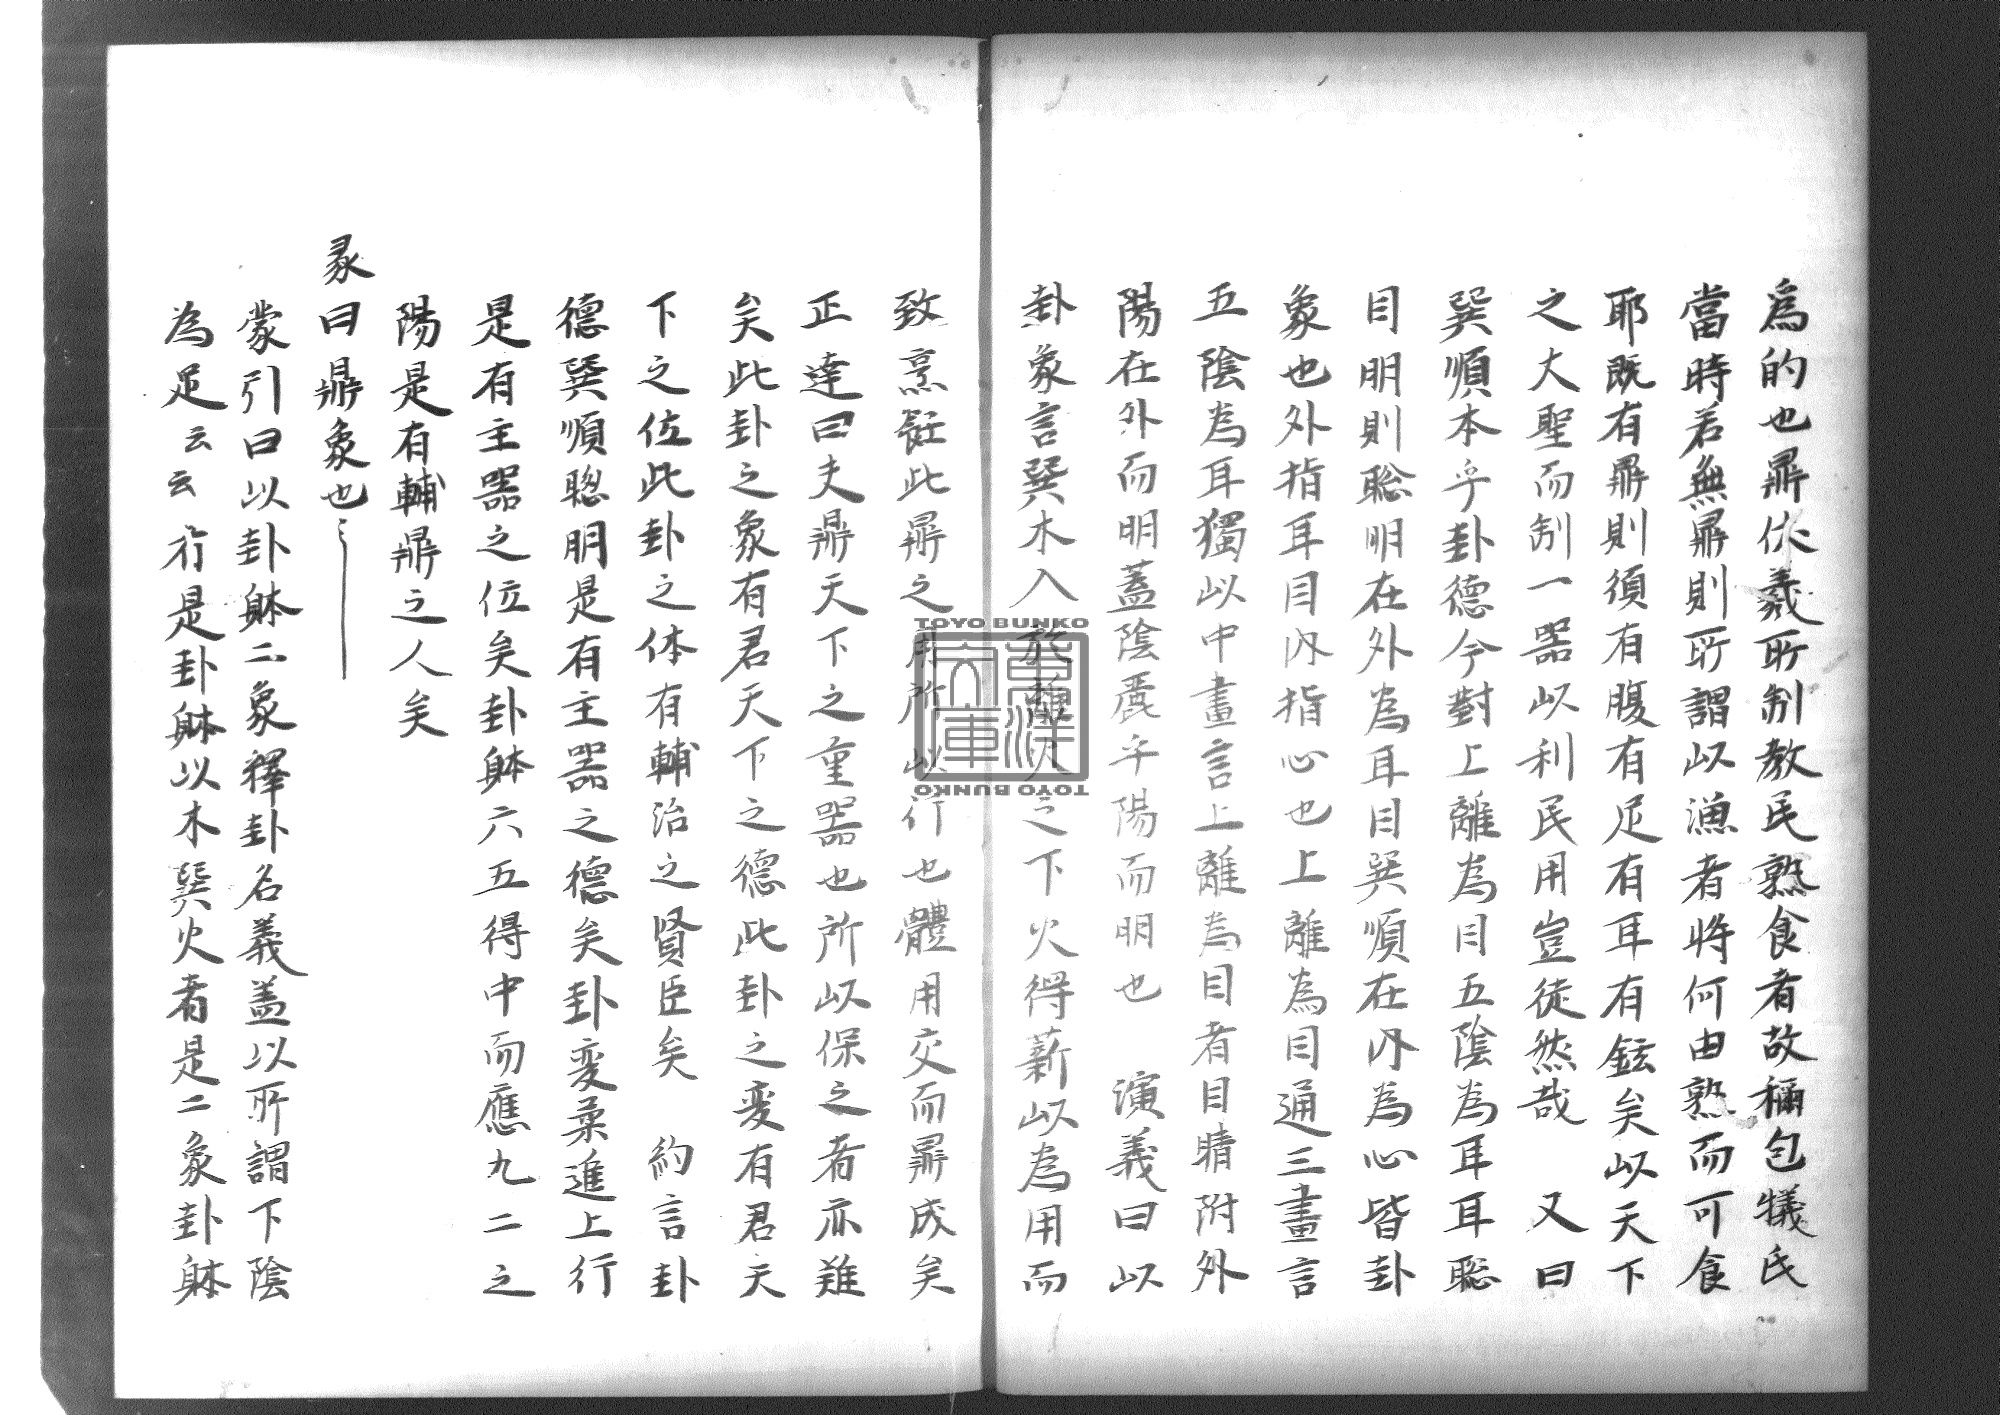 為的也鼎伏羲所制教民熟食者故稱包犧氏
當時若無鼎則所謂以漁者將何由熟而可食
耶既有鼎則須有腹有足有耳有鉉矣以天下
之大聖而制一器以利民用豈徒然哉 又曰
巽順本乎卦德今對上離為目五陰為耳耳聡
目明則聡明在外為耳目巽順在内為心皆卦
象也外指耳目内指心也上離為目通三畫言
五陰為耳獨以中畫言上離為目者目睛附外
陽在外而明蓋陰麗乎陽而明也 演義曰以
卦象言巽木入於離火之下火得薪以為用而
致烹飪此鼎之用所以行也體用交而鼎成矣
正達曰夫鼎天下之重器也所以保之者亦難
矣此卦之象有君天下之德此卦之変有君天
下之位此卦之体有輔治之賢臣矣 約言卦
德巽順聰明是有主器之德矣卦変柔進上行
是有主器之位矣卦躰六五得中而應九二之
陽是有輔鼎之人矣
彖曰鼎象也
蒙引曰以卦躰二象釋卦名義盖以所謂下陰
為足云云 行是卦躰以木巽火者是二象卦躰
TOYO BUNKO
東洋文庫
TOYO BUNKO